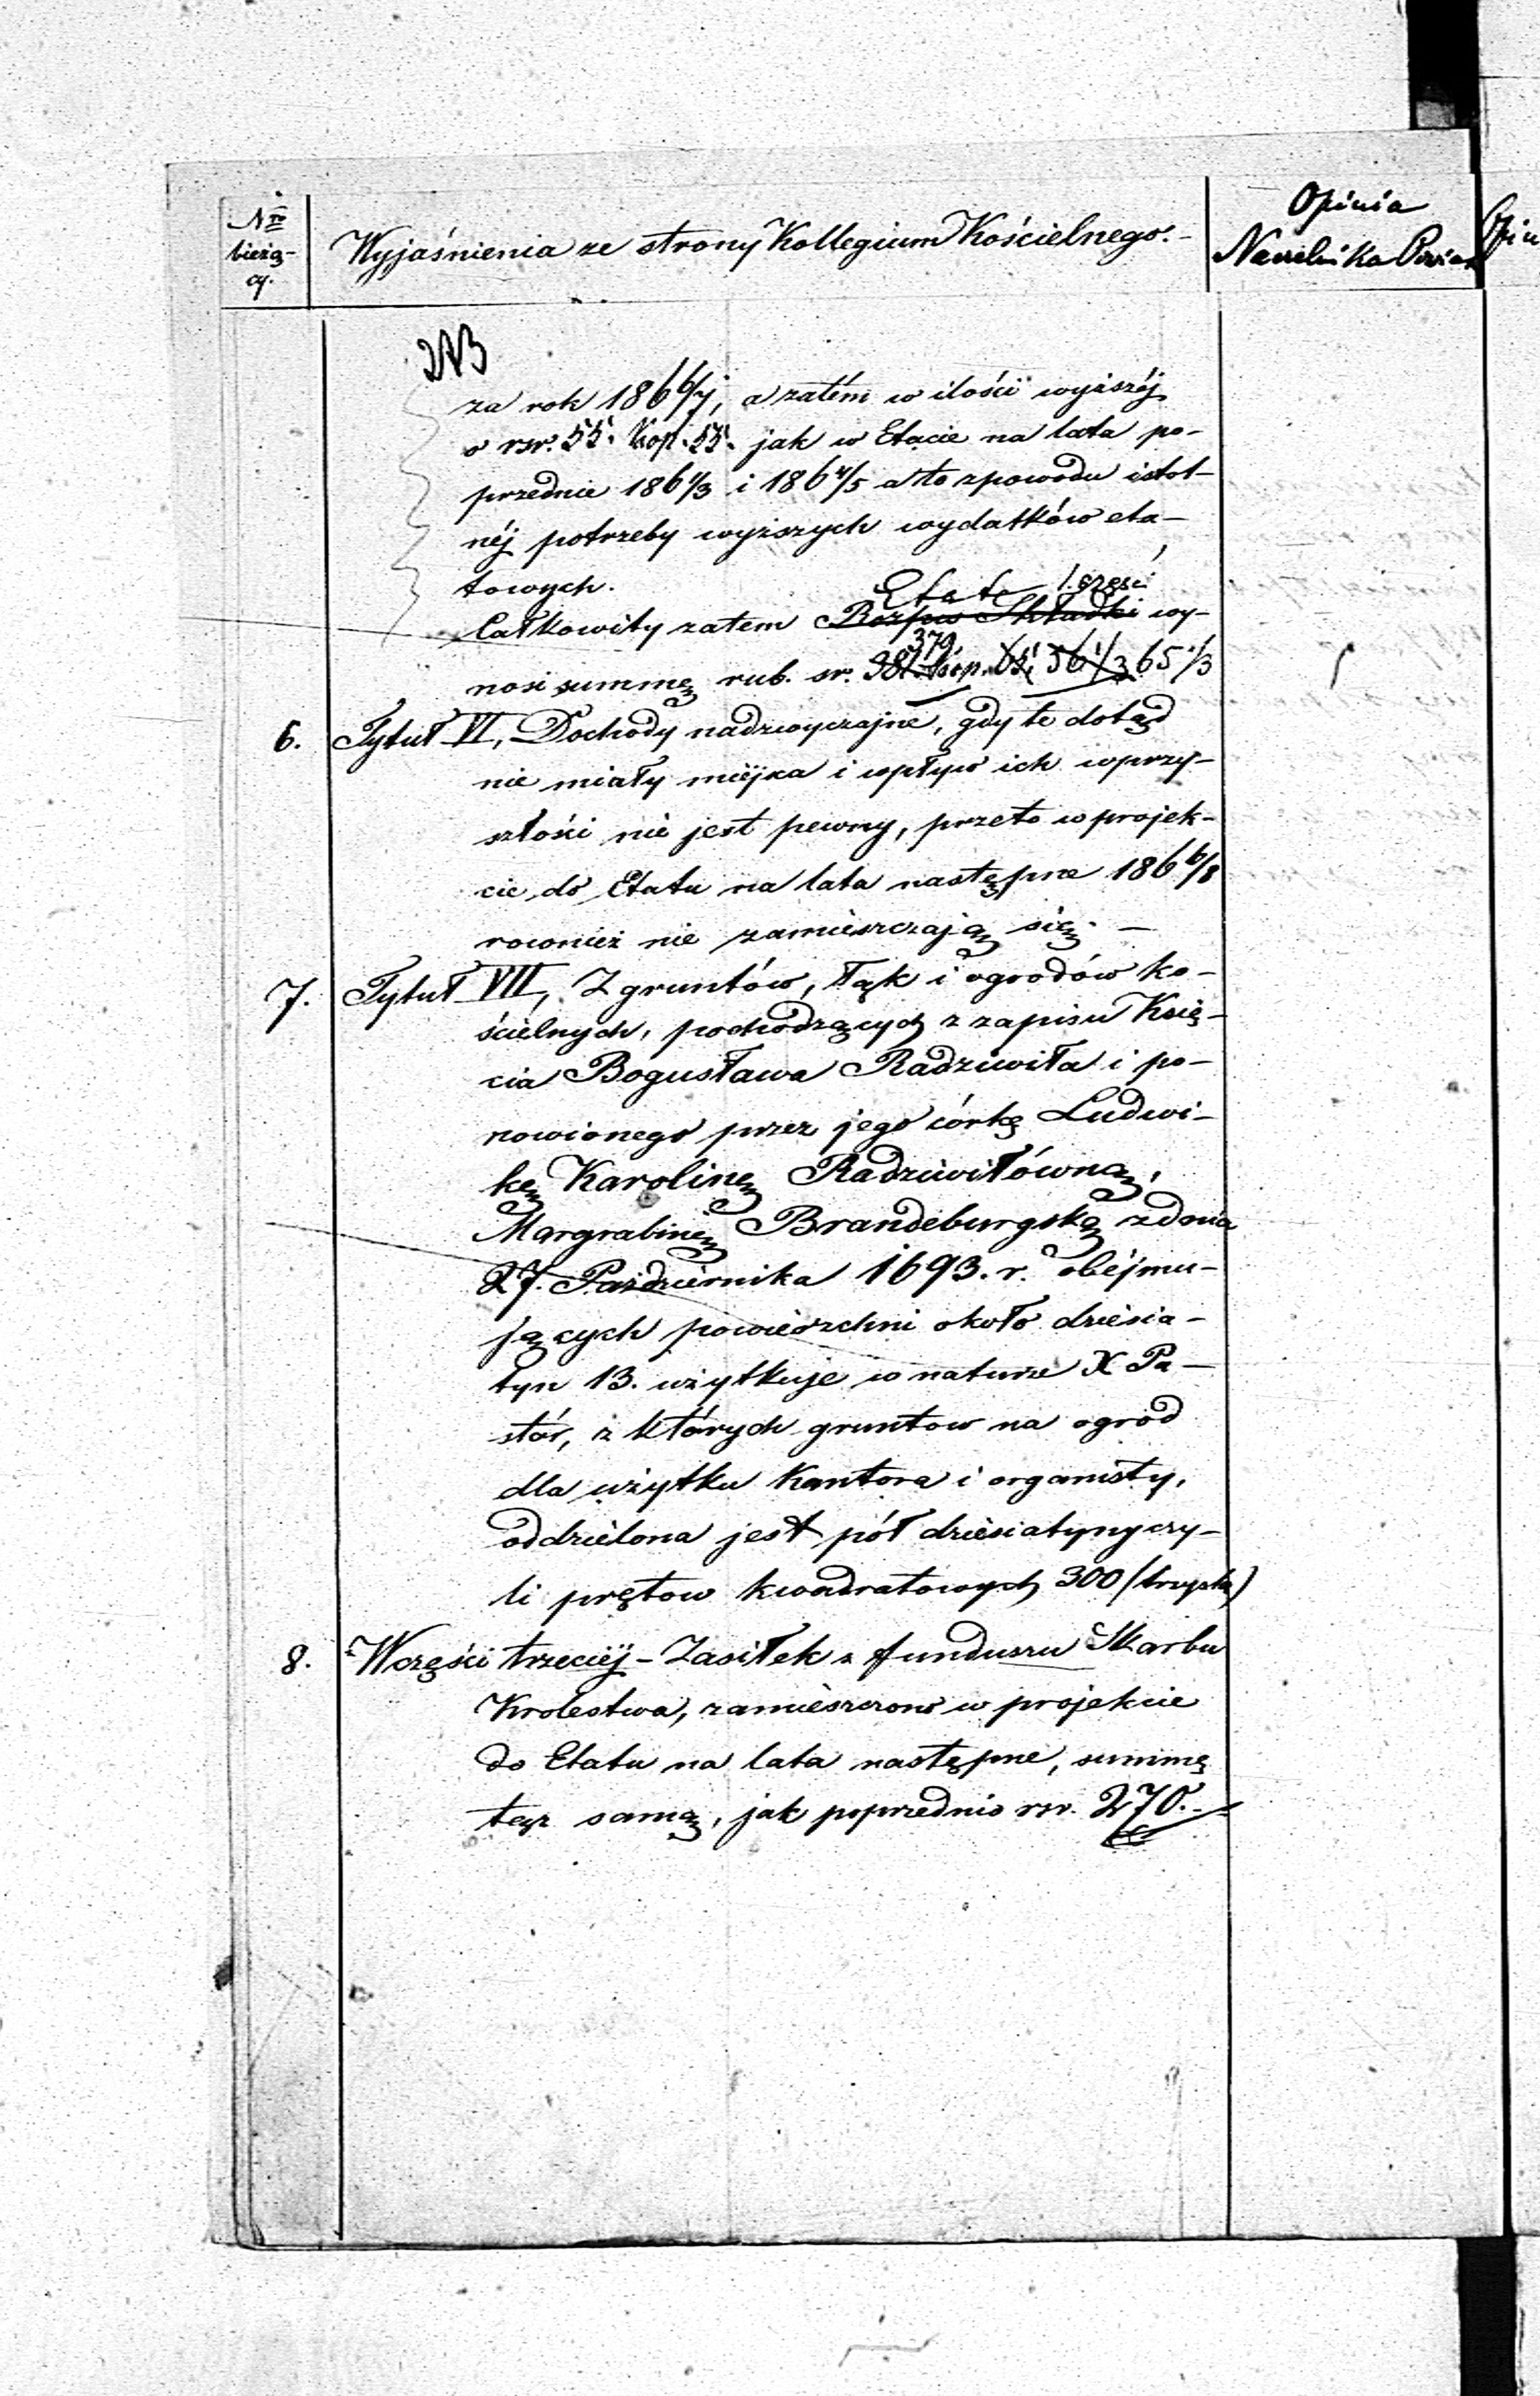 Nro
bieżą-
cy.
Wyjaśnienia ze strony Kollegium Kościelnego.-
Opinia
Naczelnika Powiat
Opin
za rok 186 6/7, a zatém w ilości wyższéj
o rsr. 55. Kop. 55. jak w Etacie na lata po-
przednie 186 1/3 i 186 4/5 a to z powodu istot-
néj potrzeby wyższych wydatków eta-
towych.
Etat 1. część
Całkowity zatem Rozpis Składki wy-
379
nosi summę rub. sr. 381. kop. 56 1/3 65 1/3
6. Tytuł VI, Dochody nadzwyczajne, gdy te dotąd
nie miały miéjsca i wpływ ich w przy-
szłości nie jest pewny, przeto w projek-
cie do Etatu na lata następne 186 6/8
rownież nie zamieszczają się. -
7. Tytuł VII, Z gruntów, łąk i ogrodów ko-
ścielnych, pochodzących z zapisu Księ-
cia Bogusława Radziwiła i po-
nowionego przez jego córkę Ludwi-
kę Karolinę Radziwiłównę,
Margrabinię Brandeburgską z dnia
27. Października 1693. r. obéjmu-
jących powierzchni około dziesia-
tyn 13. użytkuje w naturze X Pa-
stór, z których gruntow na ogród
dla użytku Kantora i organisty,
oddzielona jest pół dziesiatyny czy-
li prętow kwadratowych 300 (trzysta)
8. W części trzeciéj - Zasiłek z funduszu Skarbu
Krolestwa, zamieszczono w projekcie
do Etatu na lata następne, summę
też samą, jak poprzednio rsr. 270.-